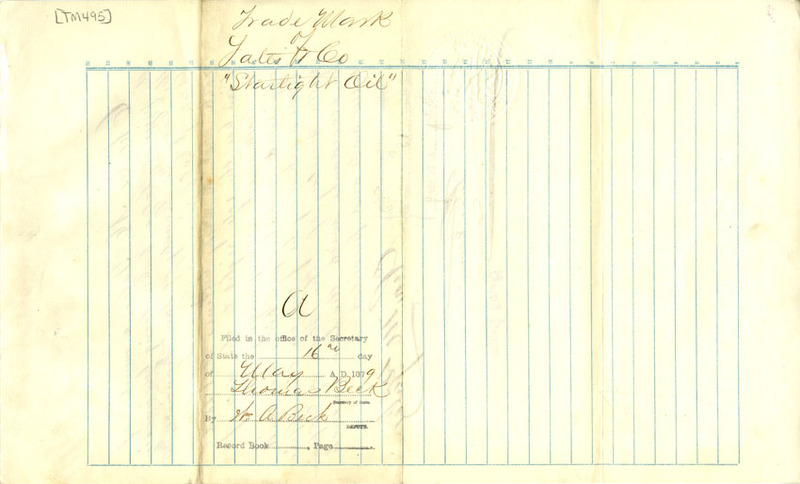 [TM495]
Trade Mark
of
Yates & Co
"Starlight Oil"
a
Filed in the office of the Secretary
of State the 16th day
of May A. D. 1879
Thomas Beck
Secretary of State
By W. A. Beck
DEPUTY.
Record Book , Page